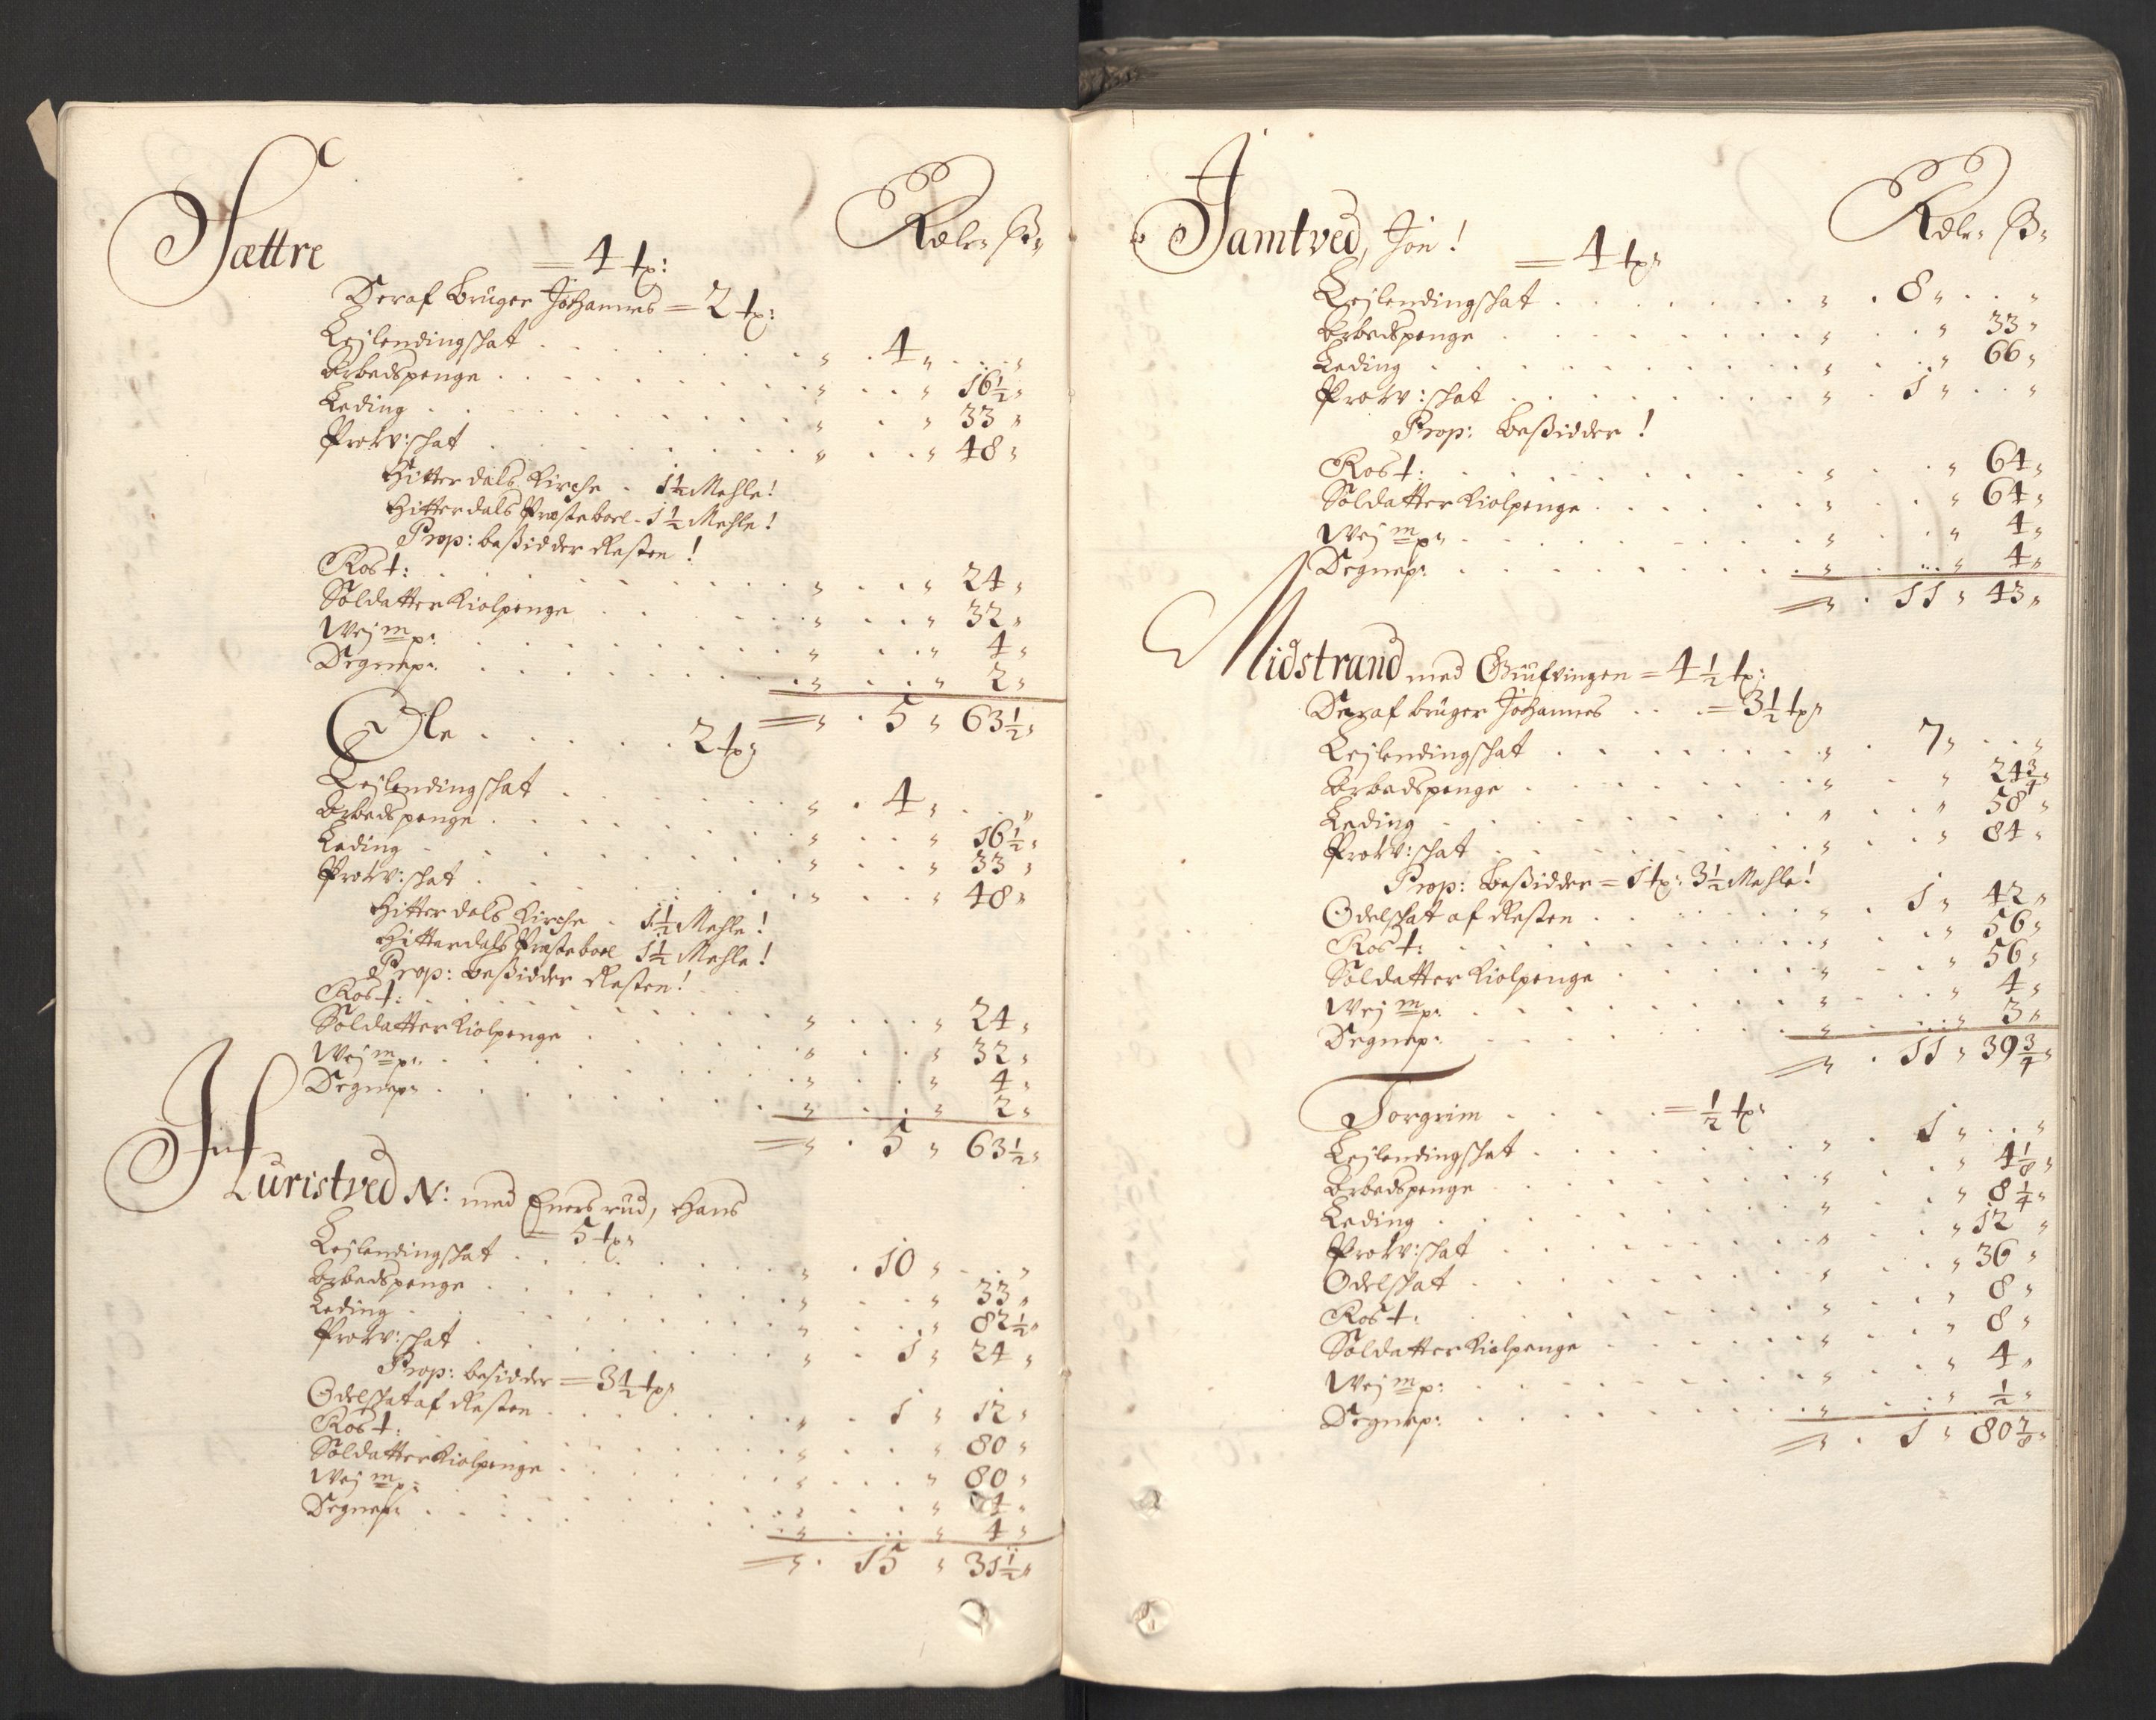 Rdlr: ß:
Sættre = 4 tp:
Deraf Bruger Johannes = 2 tp:
Leylendingschat . . . " . 4 " . . "
Arbedspenge . . . " . . " 16½ "
Leding . . . " . . " 33 "
Prow: schat . . . " . . " 48 "
Hitterdals Kirche . 1½ Mehle!
Hitterdals Præsteboel . 1½ Mehle!
Prop: beßidder Resten!
Ros t: . . . " . . " 24 "
Soldatter Kiolpenge . . . " . . " 32 "
Wej m p: . . . " . . " 4 "
Degnep: . . . " . . " 2 "
= " . 5 " 63½ "
Ole . . . 2 tp:
Leylendingschat . . . " . 4 " . . "
Arbedspenge . . . " . . " 16½ "
Leding . . . " . . " 33 "
Prow: schat . . . " . . " 48 "
Hitterdals Kirche . 1½ Mehle!
Hitterdals Præsteboel 1½ Mehle!
Prop: beßidder Resten!
Ros t: . . . " . . " 24 "
Soldatter Kiolpenge . . . " . . " 32 "
Wej m p: . . . " . . " 4 "
Degnep: . . . " . . " 2 "
= " . 5 " 63½ "
Huristved N: med Enersrud, Hans
= 5 tp:
Leylendingschat . . . " . 10 " . . "
Arbedspenge . . . " . . " 33 "
Leding . . . " . . " 82½ "
Prow: schat . . . " . 1 " 24 "
Prop: besidder = 3½ tp:
Odelschat af Resten . . . " . 1 " 12 "
Ros t: . . . " . . " 80 "
Soldatter Kiolpenge . . . " . . " 80 "
Wej m p: . . . " . . " 4 "
Degnep: . . . " . . " 4 "
= " . 15 " 31½ "
Rdlr: ß:
Jamtved, Jon! = 4 tp:
Leylendingschat . . . " . 8 " . . "
Arbedspenge . . . " . . " 33 "
Leding . . . " . . " 66 "
Prow: schat . . . " . 1 " . . "
Prop: Beßidder!
Ros t: . . . " . . " 64 "
Soldatter Kiolpenge . . . " . . " 64 "
Wej m p: . . . " . . " 4 "
Degnep: . . . " . . " 4 "
= " . 11 " 43 "
Midstrand med = 4½ tp:
Deraf bruger Johannes . . . = 3½ tp:
Leylendingschat . . . " . 7 " . . "
Arbedspenge . . . " . . " 24¾ "
Leding . . . " . . " 58 "
Prow: schat . . . " . . " 84 "
Prop: Beßidder = 1 tp: 3½ Mehle!
Odelschat af Resten . . . " . 1 " 42 "
Ros t: . . . " . . " 56 "
Soldatter Kiolpenge . . . " . . " 56 "
Wej m p: . . . " . . " 4 "
Degnep: . . . " . . " 3 "
= " . 11 " 39¾ "
Torgrim . . . = ½ tp:
Leylendingschat . . . " . 1 " . . "
Arbedspenge . . . " . . " 4⅛ "
Leding . . . " . . " 8¼ "
Prow: schat . . . " . . " 12 "
Odelschat . . . " . . " 36 "
Ros t: . . . " . . " 8 "
Soldatter Kiolpenge . . . " . . " 8 "
Wej m p: . . . " . . " 4 "
Degnep: . . . " . . " ½ "
= " . 1 " 80⅞ "